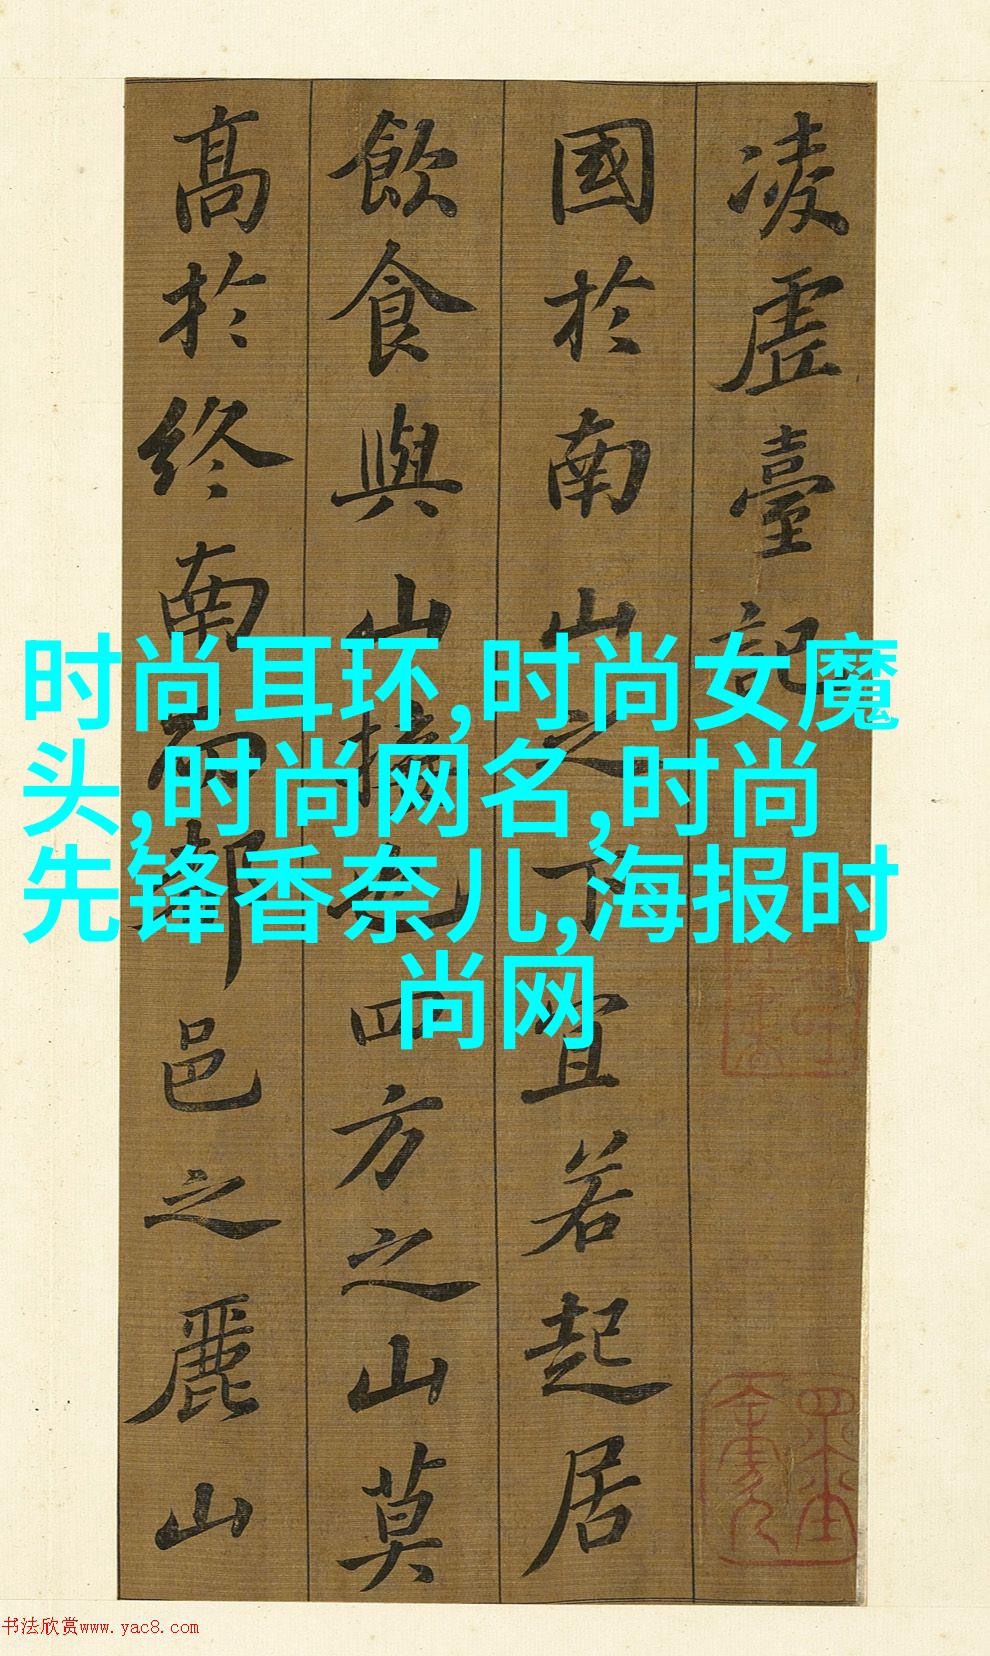 凌虛臺記
國於南山之下宜若起居
飲食與山接也四方之山莫
高於終南而都邑之麗山
时尚耳环,时尚女魔
头,时尚网名,时尚
先锋香奈儿,海报时
尚网
书法欣赏www.yac8.com